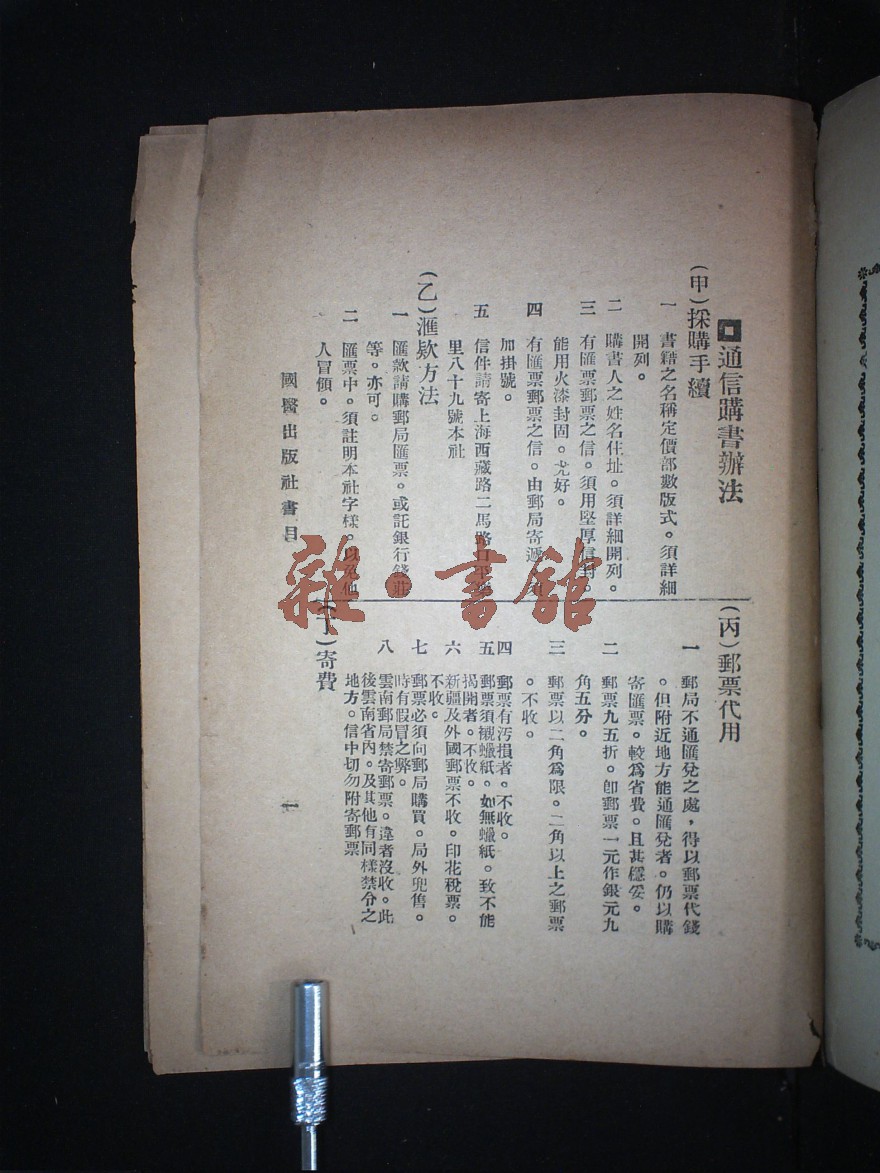 通信購書辦法
(甲)採購手續
一 書籍之名稱定價部數版式。須詳細
開列。
二 購書人之姓名住址。須詳細開列。
三 有匯票郵票之信。須用堅厚信封。
能用火漆封固。尤好。
四 有匯票郵票之信。由郵局寄遞。須
加掛號。
五 信件請寄上海西藏路二馬路口平
里八十九號本社
(乙)滙欵方法
一 匯款請購郵局匯票。或託銀行錢莊
等。亦可。
二 匯票中。須註明本社字樣。以免他
人冒領。
(丙)郵票代用
一 郵局不通匯兌之處,得以郵票代錢
。但附近地方能通匯兌者。仍以購
寄匯票。較爲省費。且甚穩妥。
二 郵票九五折。卽郵票一元作銀元九
角五分。
三 郵票以二角爲限。二角以上之郵票
。不收。
四 郵票有汚損者。不收。
五 郵票須襯蠟紙。如無蠟紙。致不能
揭開者。不收。
六 新疆及外國郵票不收。印花稅票。
不收。
七 郵票必須向郵局購買。局外兜售。
時有假冒之弊。
八 雲南郵局禁寄郵票。違者沒收。此
後雲南省內。及其他有同樣禁分之
地方。信中切勿附寄郵票
(丁)寄費
國醫出版社書目
一
雜·書館